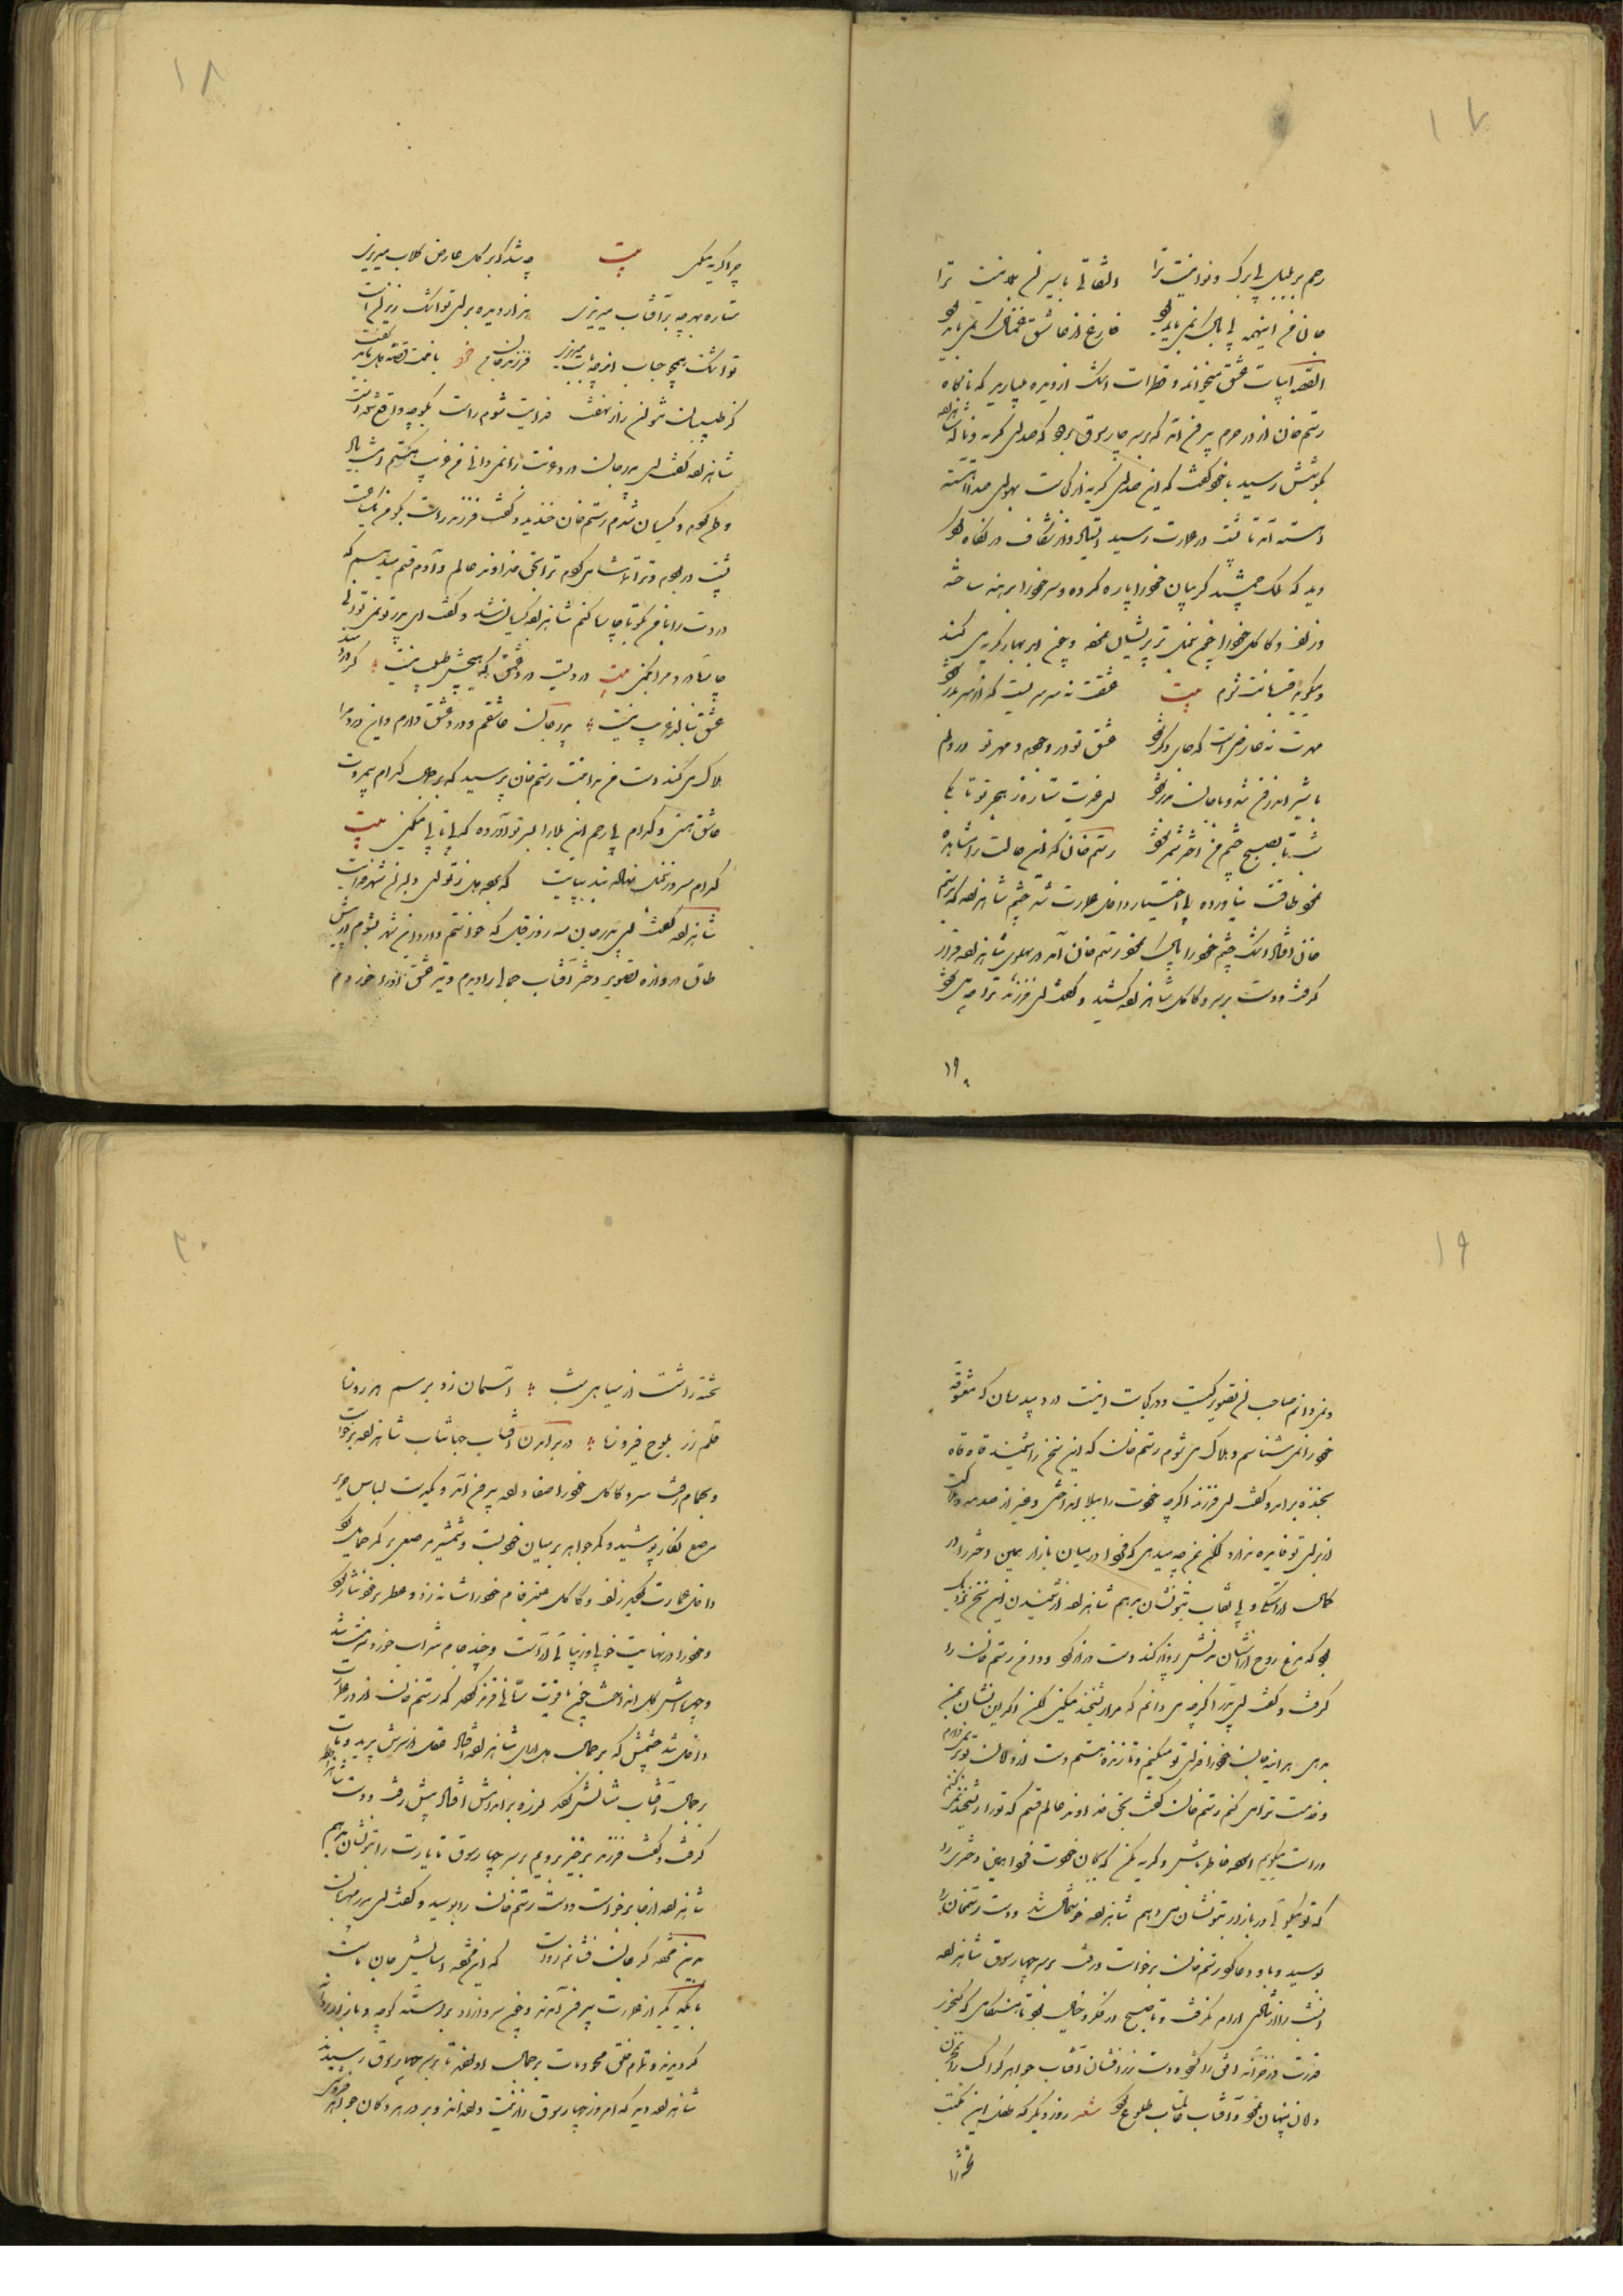 ۱۷
رحم بر بلبل بی برگ و نوا نیست ترا التفاتی باسیر غم بلا نیست ترا
جان من اینهمه بی باک نمی باید بود فارغ از عاشق غمناک نمی باید بود
القصه ابیات عشق میخواند و قطرات اشک از دیده میبارید که ناگاه
رستم خان از در حرم بیرون آمد که بر سر چارسوق برود که صدای گریه و ناله شاهزاده
بگوشش رسید با خود گفت که این صدای گریه از کجاست بهوای صدا آهسته
آهسته آمد تا پشت در عمارت رسید ایستاد و از شکاف در نگاه کرد
دید که ملک جمشید گریبان خود را پاره کرده و سر خود را برهنه ساخته
و زلف و کاکل خود را پریشان نموده و چون ابر بهار گریه می کند
و میگوید قربانت شوم بیت عشقت نه سرسریست که از سر بدر شود
مهرت نه عارضی است که جای دگر شود عشق تو در وجودم و مهر تو در دلم
با شیر اندرون شد و با جان بدر شود ستاره ز هجر تو تا بکی
شب تا بصبح چشم من اختر شمر شود رستم خان که این حالت را مشاهده
نمود طاقت نیاورده بی اختیار داخل عمارت شد چشم شاهزاده که برستم
خان افتاد اشک چشم خود را پاک نمود رستم خان آمد در پهلوی شاهزاده قرار
گرفت و دست بر سر و کاکل شاهزاده کشید و گفت ای فرزند ترا چه می شود
۱۹
۱۸
چرا گریه میکنی بیت چه شد که بر گل عارض گلاب میریزی
ستاره بهر چه بر آفتاب میریزی
تو اشک همچو حباب از چه بابت میریزی فرزند جان من با منت قصه دل باید گفت
کز طبیبان نتوان راز نهفت فدایت شوم راست بگو چه واقع شده است
شاهزاده گفت ای پدر جان درد عزت را نمی دانی من غریب هستم
وطن کردم و گریان شدم رستم خان خندید و گفت فرزند راست بگو من یک ساعت
پشت در بودم و ترا تماشا می کردم ترا بحق خداوند عالم و آدم قسم میدهم که
دردت را با من بگو تا چاره کنم شاهزاده گریان شد و گفت ای پدر تو نمی توانی
چاره درد مرا بکنی بیت دردیست درد عشق که هیچش طبیب نیست گر دردمند
عشق بنالد غریب نیست پدر جان عاشقم و درد عشق دارم و این درد مرا
هلاک می کند رستم خان پرسید که بر جمال کدام بیمروت
عاشق هستی و کدام بی رحم این بلا را بر سر تو آورده که بی تابی میکنی بیت
کدام سرو نهاله پند بپایت که برده دل ز تو ای دلبران شهر فدایت
شاهزاده گفت ای پدر جان سه روز قبل که خواستم وارد این شهر بشوم در پیش
طاق دروازه تصویر دختر آفتاب جمالی را دیدم و تیر عشق او را خوردم
۱۹
و نمی دانم صاحب این تصویر کیست و در کجاست اینست درد بیدرمان که معشوقه
خود را نمی شناسم و هلاک می شوم رستم خان که این سخن را شنید قاه قاه
بخنده در آمد و گفت ای فرزند اگر چه خودت را ببلا انداختی و غیر از صدمه و فلاکت
از برای تو فایده ندارد لکن غم چه میداری که فردا در میان بازار همین دختر را در
کمال آراستگی و بی نقاب بتو نشان بدهم شاهزاده از شنیدن این سخن نزدیک
بود که مرغ روح از آشیان تنش پرواز کند دست دراز کرد و دامن رستم خان را
گرفت و گفت ای پدر اگر چه می دانم که مرا ریشخند میکنی لکن اگر این نشان بمن
بدهی هر آینه جان خود را فدای تو میکنم و تا زنده هستم دست از دامان تو بر نمی دارم
و خدمت ترا می کنم رستم خان گفت بحق خداوند عالم قسم که تو را ریشخند نمی کنم
و راست میگویم آسوده خاطر باش و گریه مکن که بجان خودت فردا همین دختری را
که تو میگوئی در بازار بتو نشان می دهم شاهزاده خوشحال شد و دست رستم خان را
بوسید و باو دعا کرد رستم خان برخاست و رفت بر سر چهارسوق شاهزاده
آنشب را آرام نگرفت و تا صبح در فکر و خیال بود تا هنگامی که گنجور
قدرت در خزانه افق را گشود و دست زرافشان آفتاب جواهر کواکب را
پنهان نمود و آفتاب عالمتاب طلوع کرد شعر روز دیگر که طفل این مکتب
تخته را
۲۰
تخته را شست از سیاهی شب آسمان زد بر سم هر روزنا
قلم زر بلوح فیروزنا در برآمدن آفتاب جهانتاب شاهزاده برخاست
و بحمام رفت سر و کاکل خود را صفا داده بیرون آمد و یکدست لباس حریر
مرصع نگار پوشید و کمر جواهر بر میان خود بست و شمشیر مرصعی بر کمر حمایل کرد
داخل عمارت گردید زلف و کاکل عنبر فام خود را شانه زد و عطر بر خود نثار کرد
و خود را در نهایت خوبی و زیبائی آراست و چند جام شراب خورد و سرمست شد
که رستم خان از در عمارت
داخل شد چشمش که بر جمال دل آرای شاهزاده افتاد عقل از سرش پرید
بر جمال آفتاب مثالش کرد لرزه بر اندامش افتاد پیش رفت و دست شاهزاده را
گرفت و گفت فرزند برخیز برویم بر سر چهارسوق تا یارت را بتو نشان بدهم
شاهزاده از جا برخاست و دست رستم خان را بوسید و گفت ای پدر مهربان
بدین مژده گر جان فشانم رواست که این مژده آسایش جان ماست
با یکدیگر از عمارت بیرون آمدند و چون سرو آزاد براستی کوچه و بازار روان
گردیدند و تمام خلق محو و مات بر جمال او بودند تا بر سر چهارسوق رسیدند
شاهزاده دید که امروز چهارسوق را زینت داده اند و بر در هر دکان جواهر فروش